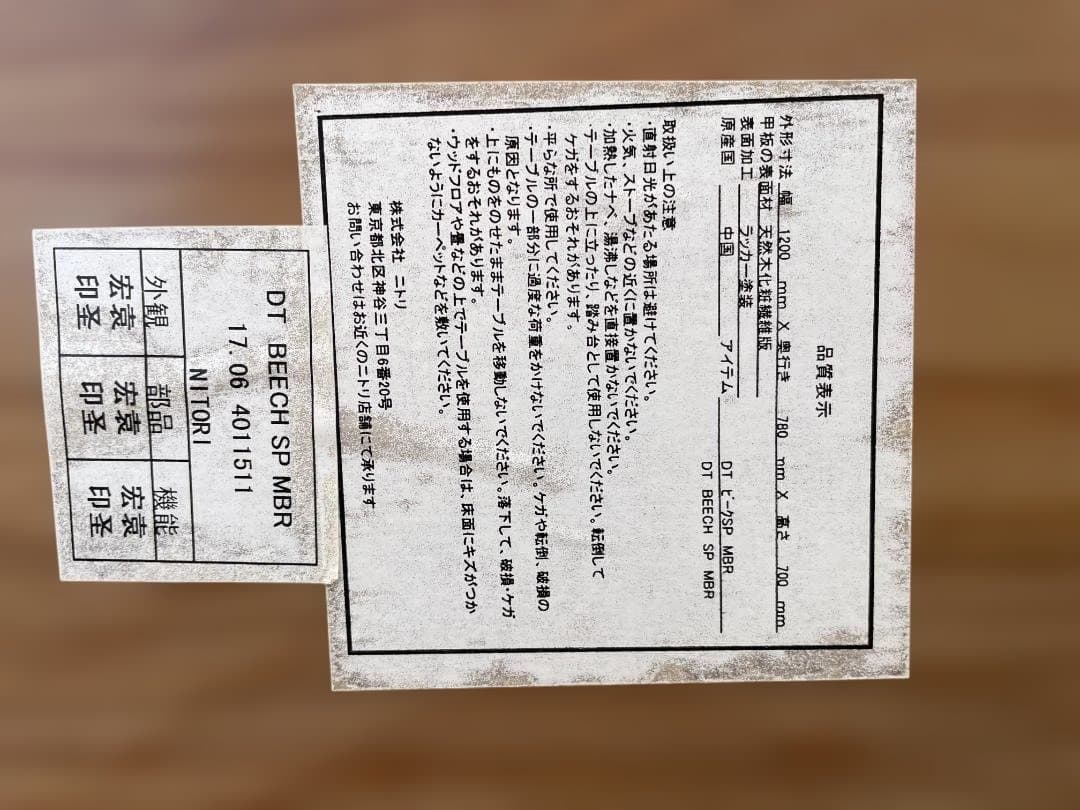 品質表示
外形寸法 幅 1200 mm X 奥行き 780 mm X 高さ 700 mm
甲板の表面材 天然木化粧繊維版
表面加工 ラッカー塗装
原産国 中国 アイテム DT ビークSP MBR
DT BEECH SP MBR
取扱い上の注意
・直射日光があたる場所は避けてください。
・火気、ストーブなどの近くに置かないでください。
・加熱したナベ、湯沸しなどを直接置かないでください。
・テーブルの上に立ったり、踏み台として使用しないでください。転倒して
ケガをするおそれがあります。
・平らな所で使用してください。
・テーブルの一部分に過度な荷重をかけないでください。ケガや転倒、破損の
原因となります。
・上にものをのせたままテーブルを移動しないでください。落下して、破損・ケガ
をするおそれがあります。
・ウッドフロアや畳などの上でテーブルを使用する場合は、床面にキズがつか
ないようにカーペットなどを敷いてください。
株式会社 ニトリ
東京都北区神谷三丁目6番20号
お問い合わせはお近くのニトリ店舗にて承ります
DT BEECH SP MBR
17.06 4011511
NITORI
外観 部品 機能
宏袁 宏袁 宏袁
印圣 印圣 印圣